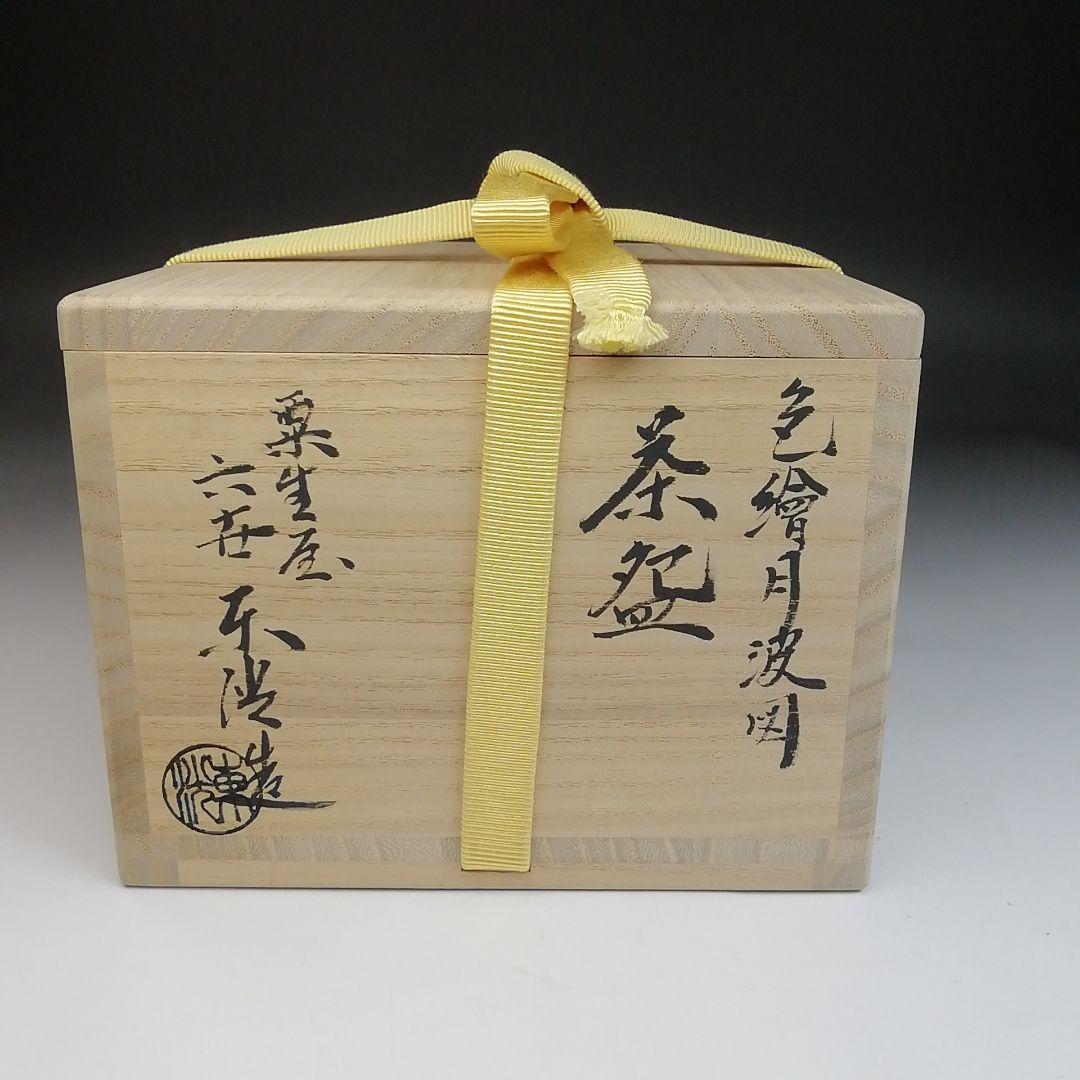 色繪月波図
茶盌
粟生屋
六世
東
造
東